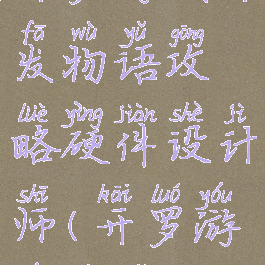 fā wù yǔ gōng
发物语攻
lüè yìng jiàn shè jì
略硬件设计
shī kāi luó yóu
师(开罗游